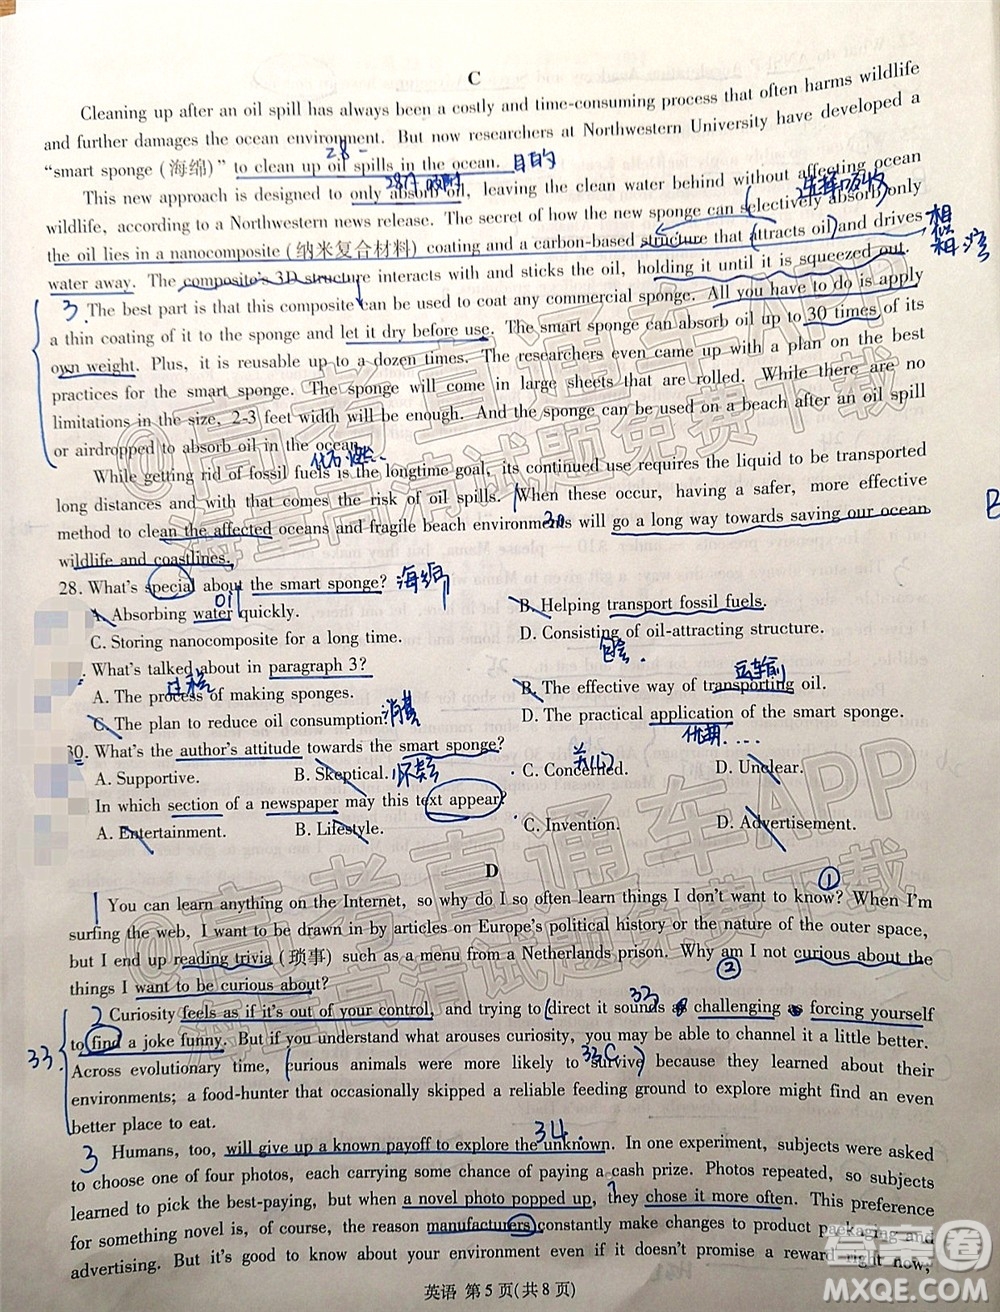 C
Cleaning up after an oil spill has always been a costly and time-consuming process that often harms wildlife
and further damages the ocean environment. But now researchers at Northwestern University have developed a
“smart sponge (海绵)” to clean up oil spills in the ocean. 目的
28
This new approach is designed to only absorb oil, leaving the clean water behind without affecting ocean
wildlife, according to a Northwestern news release. The secret of how the new sponge can selectively absorb only
the oil lies in a nanocomposite (纳米复合材料) coating and a carbon-based structure that attracts oil and drives
water away. The composite's 3D structure interacts with and sticks the oil, holding it until it is squeezed out.
3 The best part is that this composite can be used to coat any commercial sponge. All you have to do is apply
a thin coating of it to the sponge and let it dry before use. The smart sponge can absorb oil up to 30 times of its
own weight. Plus, it is reusable up to a dozen times. The researchers even came up with a plan on the best
practices for the smart sponge. The sponge will come in large sheets that are rolled. While there are no
limitations in the size, 2-3 feet width will be enough. And the sponge can be used on a beach after an oil spill
or airdropped to absorb oil in the ocean.
While getting rid of fossil fuels is the longtime goal, its continued use requires the liquid to be transported
long distances and with that comes the risk of oil spills. When these occur, having a safer, more effective
method to clean the affected oceans and fragile beach environments will go a long way towards saving our ocean
30
B
wildlife and coastlines.
28. What's special about the smart sponge? 海绵
oil
A. Absorbing water quickly.
B. Helping transport fossil fuels.
C. Storing nanocomposite for a long time.
D. Consisting of oil-attracting structure.
. What's talked about in paragraph 3?
A. The process of making sponges.
过程
B. The effective way of transporting oil.
运输
C. The plan to reduce oil consumption. 消耗
D. The practical application of the smart sponge.
30. What's the author's attitude towards the smart sponge?
A. Supportive.
B. Skeptical. 怀疑
C. Concerned.
关心
D. Unclear.
In which section of a newspaper may this text appear?
A. Entertainment.
B. Lifestyle.
C. Invention.
D. Advertisement.
D
1 You can learn anything on the Internet, so why do I so often learn things I don't want to know? When I'm
①
surfing the web, I want to be drawn in by articles on Europe's political history or the nature of the outer space,
but I end up reading trivia (琐事) such as a menu from a Netherlands prison. Why am I not curious about the
②
things I want to be curious about?
2 Curiosity feels as if it's out of your control, and trying to direct it sounds as challenging as forcing yourself
33
to find a joke funny. But if you understand what arouses curiosity, you may be able to channel it a little better.
33.
Across evolutionary time, curious animals were more likely to survive because they learned about their
33C
environments; a food-hunter that occasionally skipped a reliable feeding ground to explore might find an even
better place to eat.
3 Humans, too, will give up a known payoff to explore the unknown. In one experiment, subjects were asked
34.
to choose one of four photos, each carrying some chance of paying a cash prize. Photos repeated, so subjects
learned to pick the best-paying, but when a novel photo popped up, they chose it more often. This preference
for something novel is, of course, the reason manufacturers constantly make changes to product packaging and
advertising. But it's good to know about your environment even if it doesn't promise a reward right now;
英语 第 5 页(共 8 页)
@高考直通车APP
海量高清试题免费下载
@高考直通车APP
海量高清试题免费下载
答案圈
MXQE.COM